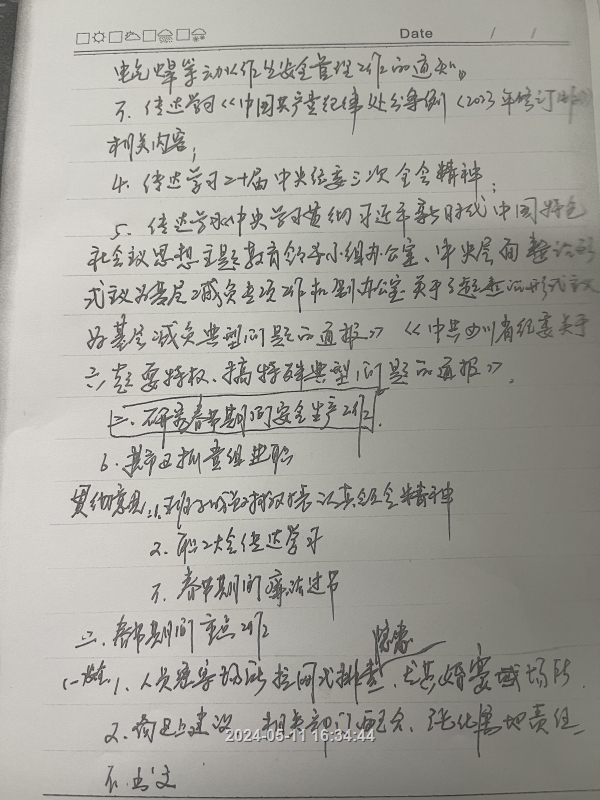 Date / /
电气焊等动火作业安全管理工作的通知。
3. 传达学习《中国共产党纪律处分条例》（2023年修订版）
相关内容；
4. 传达学习二十届中央纪委三次全会精神；
5. 传达学习《中央学习贯彻习近平新时代中国特色
社会主义思想主题教育领导小组办公室、中央层面整治形
式主义为基层减负专项工作机制办公室关于3起整治形式主义
为基层减负典型问题的通报》《中共四川省纪委关于
六起要特权、搞特殊典型问题的通报》。
二、研究春节期间安全生产工作.
6.
贯彻意见：1. 认真 全会精神
2. 职工大会传达学习
3. 春节期间廉洁过节
二、春节期间重点工作
隐患
(一)安全 1、人员密集场所拉网式排查，尤其婚宴 场所
2. 建设 相关部门配合、强化属地责任
3.
2024-05-11 16:34:44